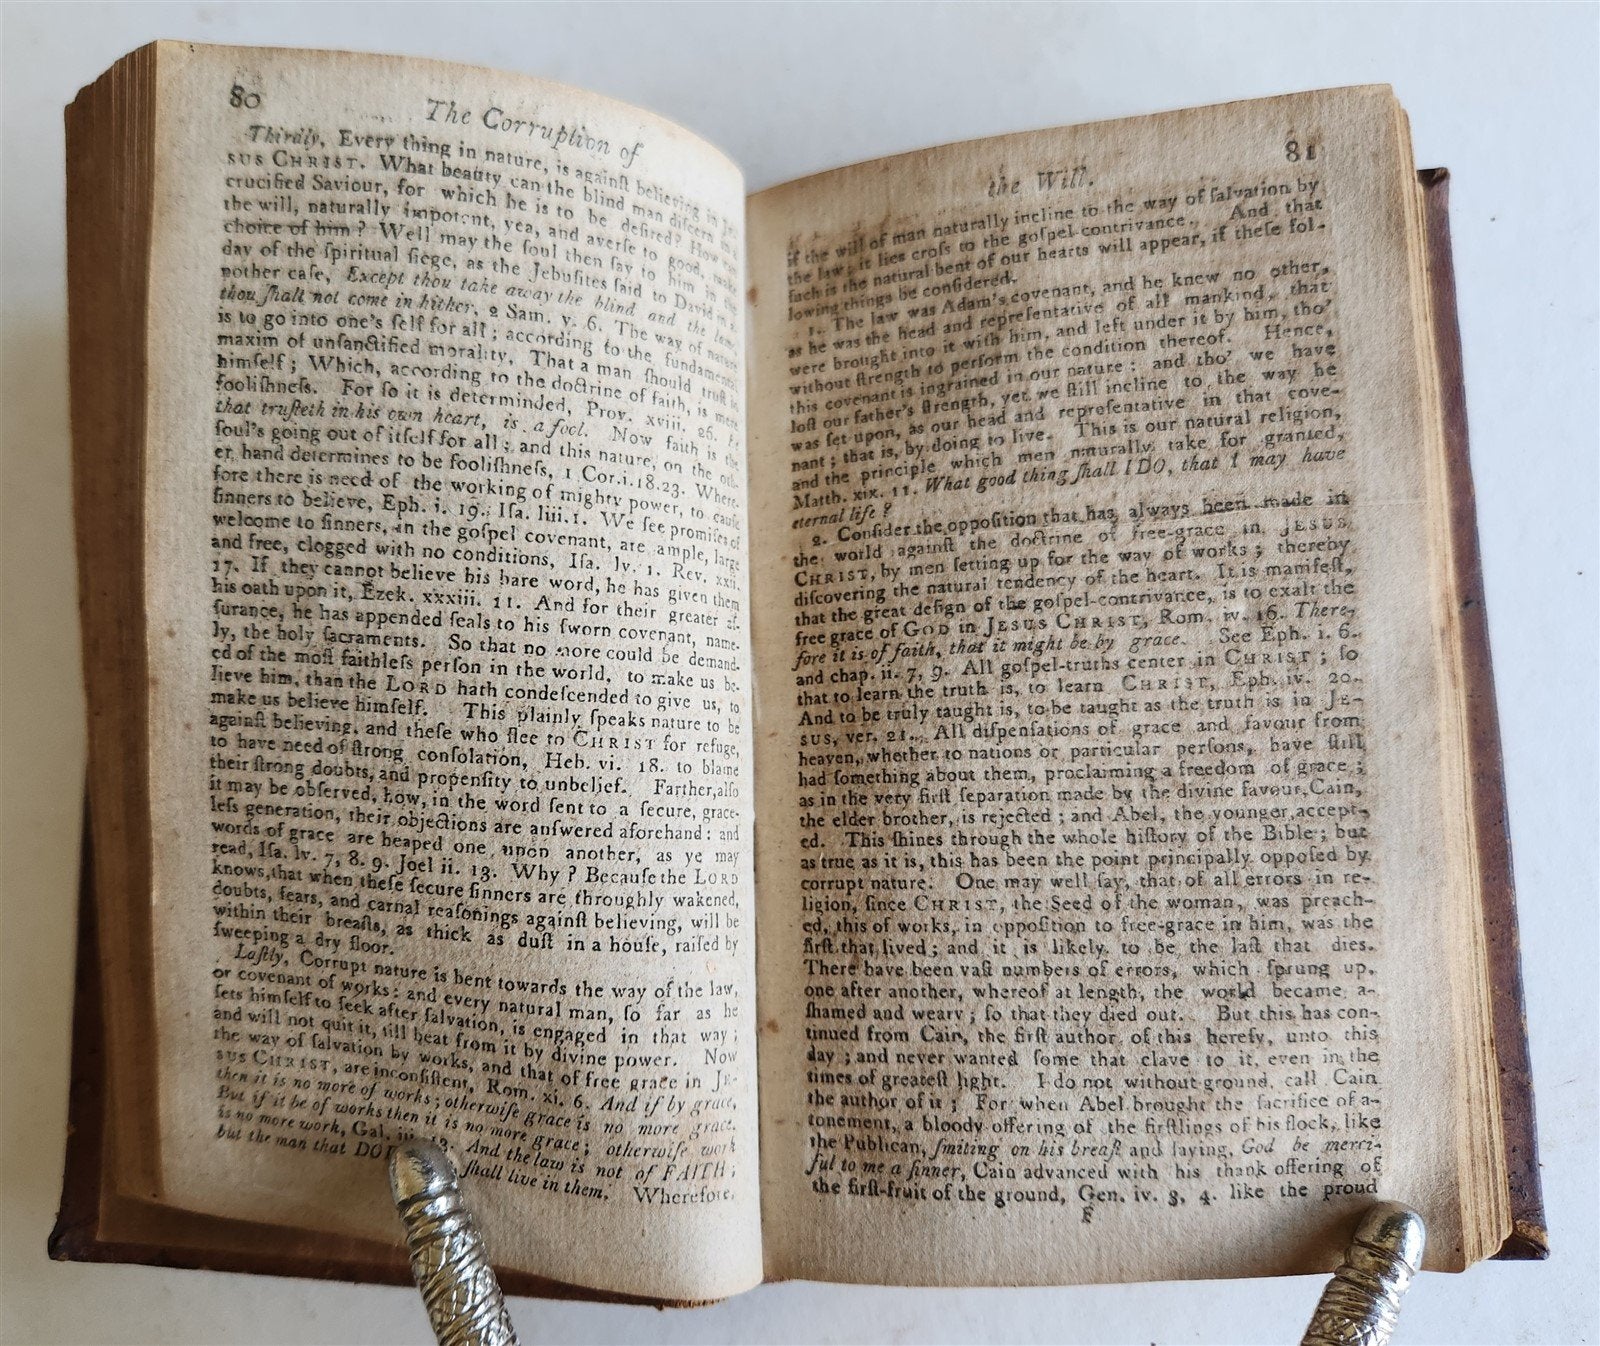 80
The Corruption of
Thirdly, Every thing in nature, is againſt believing in Je-
sus Christ. What beauty can the blind man diſcern in a
crucified Saviour, for which he is to be deſired? How can
the will, naturally impotent, yea, and averſe to good, make
choice of him? Well may the ſoul then ſay to him in the
day of the ſpiritual ſiege, as the Jebuſites ſaid to David in a-
nother caſe, Except thou take away the blind and the lame
thou ſhall not come in hither, 2 Sam. v. 6. The way of nature
is to go into one's ſelf for all; according to the fundamental
maxim of unſanctified morality, That a man ſhould truſt in
himſelf; Which, according to the doctrine of faith, is mere
fooliſhneſs. For ſo it is determinded, Prov. xviii. 26. He
that truſteth in his own heart, is a fool. Now faith is the
ſoul's going out of itſelf for all; and this nature, on the oth-
er, hand determines to be fooliſhneſs, 1 Cor. i. 18. 23. Where-
fore there is need of the working of mighty power, to cauſe
ſinners to believe, Eph. i. 19. Iſa. liii. 1. We ſee promiſes of
welcome to ſinners, in the goſpel covenant, are ample, large
and free, clogged with no conditions, Iſa. lv. 1. Rev. xxii.
17. If they cannot believe his bare word, he has given them
his oath upon it, Ezek. xxxiii. 11. And for their greater aſ-
ſurance, he has appended ſeals to his ſworn covenant, name-
ly, the holy ſacraments. So that no more could be demand-
ed of the moſt faithleſs perſon in the world, to make us be-
lieve him, than the Lord hath condeſcended to give us, to
make us believe himſelf. This plainly ſpeaks nature to be
againſt believing, and theſe who flee to Christ for refuge,
to have need of ſtrong conſolation, Heb. vi. 18. to blame
their ſtrong doubts, and propenſity to unbelief. Farther, alſo
it may be obſerved, how, in the word ſent to a ſecure, grace-
leſs generation, their objections are anſwered aforehand: and
words of grace are heaped one upon another, as ye may
read, Iſa. lv. 7, 8. 9. Joel ii. 13. Why? Becauſe the Lord
knows, that when theſe ſecure ſinners are throughly wakened,
doubts, fears, and carnal reaſonings againſt believing, will be
within their breaſts, as thick as duſt in a houſe, raiſed by
ſweeping a dry floor.
Laſtly, Corrupt nature is bent towards the way of the law,
or covenant of works: and every natural man, ſo far as he
ſets himſelf to ſeek after ſalvation, is engaged in that way;
and will not quit it, till beat from it by divine power. Now
the way of ſalvation by works, and that of free grace in Je-
sus Christ, are inconſiſtent, Rom. xi. 6. And if by grace,
then it is no more of works; otherwiſe grace is no more grace.
But if it be of works then it is no more grace; otherwiſe work
is no more work, Gal. iii. 12. And the law is not of FAITH;
but the man that ſhall live in them. Wherefore,
the Will.
81
if the will of man naturally incline to the way of ſalvation by
the law, it lies croſs to the goſpel-contrivance. And that
ſuch is the natural bent of our hearts will appear, if theſe fol-
lowing things be conſidered.
1. The law was Adam's covenant, and he knew no other,
as he was the head and repreſentative of all mankind, that
were brought into it with him, and left under it by him, tho'
without ſtrength to perform the condition thereof. Hence,
this covenant is ingrained in our nature: and tho' we have
loſt our father's ſtrength, yet we ſtill incline to the way he
was ſet upon, as our head and repreſentative in that cove-
nant; that is, by doing to live. This is our natural religion,
and the principle which men naturally take for granted,
Matth. xix. 11. What good thing ſhall I DO, that I may have
eternal life?
2. Conſider the oppoſition that has always been made in
the world againſt the doctrine of free-grace in Jesus
Christ, by men ſetting up for the way of works; thereby
diſcovering the natural tendency of the heart. It is manifeſt,
that the great deſign of the goſpel-contrivance, is to exalt the
free grace of God in Jesus Christ, Rom. iv. 16. There-
fore it is of faith, that it might be by grace. See Eph. 1. 6.
and chap. ii. 7, 9. All goſpel-truths center in Christ; ſo
that to learn the truth is, to learn Christ, Eph. iv. 20.
And to be truly taught is, to be taught as the truth is in Je-
sus, ver. 21. All diſpenſations of grace and favour from
heaven, whether to nations or particular perſons, have ſtill
had ſomething about them, proclaiming a freedom of grace;
as in the very firſt ſeparation made by the divine favour, Cain,
the elder brother, is rejected; and Abel, the younger, accept-
ed. This ſhines through the whole hiſtory of the Bible; but
as true as it is, this has been the point principally oppoſed by
corrupt nature. One may well ſay, that of all errors in re-
ligion, ſince Christ, the Seed of the woman, was preach-
ed, this of works, in oppoſition to free-grace in him, was the
firſt that lived; and it is likely to be the laſt that dies.
There have been vaſt numbers of errors, which ſprung up,
one after another, whereof at length, the world became a-
ſhamed and weary; ſo that they died out. But this has con-
tinued from Cain, the firſt author of this hereſy, unto this
day; and never wanted ſome that clave to it, even in the
times of greateſt light. I do not without ground, call Cain
the author of it; For when Abel brought the ſacrifice of a-
tonement, a bloody offering of the firſtlings of his flock, like
the Publican, ſmiting on his breaſt and ſaying, God be merci-
ful to me a ſinner, Cain advanced with his thank offering of
the firſt-fruit of the ground, Gen. iv. 3, 4. like the proud
E